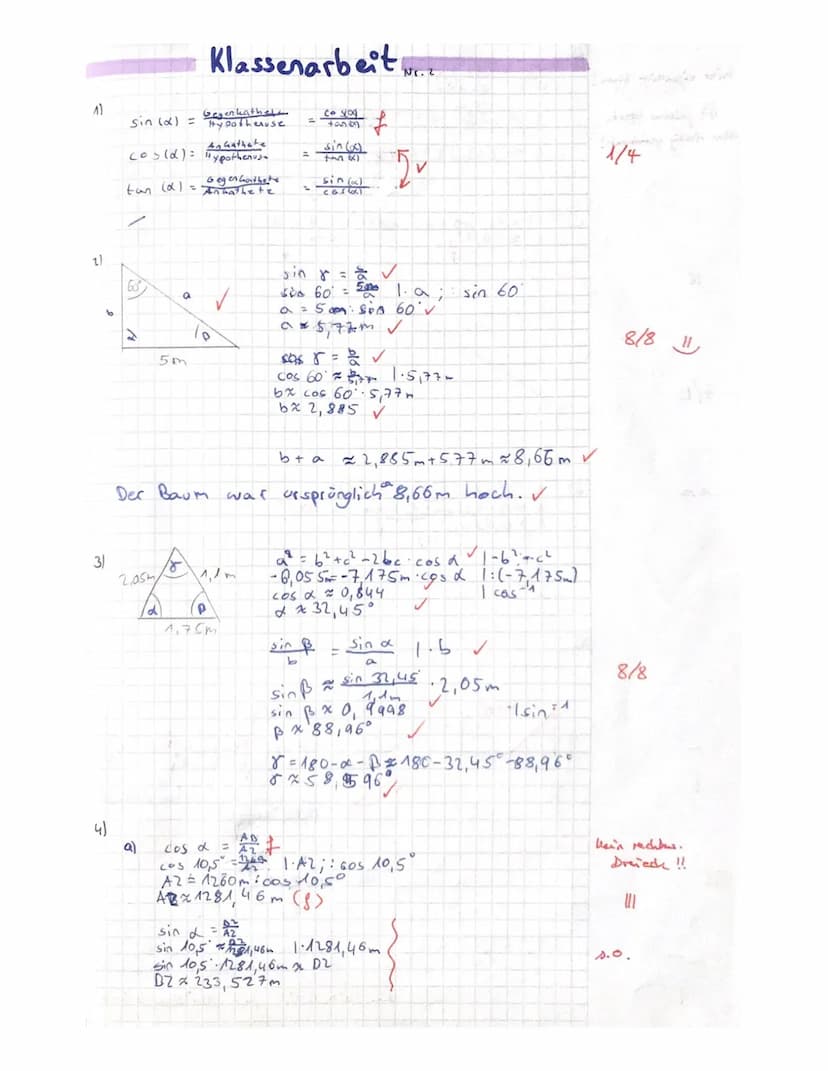 Klassenarbeit Nr. 2
1)
sin (α) = Gegenkathete / Hypothenuse = cos(α) / tan(α) f
cos (α) = Ankathete / Hypothenuse = sin(α) / tan(α) ✓
1/4
tan (α) = Gegenkathete / Ankathete = sin(α) / cos(α)
2)
60°
b
a
β
5m
✓
sin γ = c/a ✓
sin 60° = 5m/a | · a ; : sin 60
a = 5m : sin 60° ✓
a ≈ 5,77m ✓
8/8
cos γ = b/a ✓
cos 60° ≈ b/5,77m | · 5,77m
b ≈ cos 60° · 5,77m
b ≈ 2,885 ✓
b + a ≈ 2,885m + 5,77m ≈ 8,66m ✓
Der Baum war ursprünglich 8,66m hoch. ✓
3)
2,05m
γ
1,1m
α
β
1,75m
a² = b² + c² - 2bc · cos α ✓ | - b² ; + c²
-6,055m = -7,175m · cos α | : (-7,175m)
cos α ≈ 0,844 | cos⁻¹
α ≈ 32,45° ✓
sin β / b = sin α / a | · b ✓
sin β ≈ sin 32,45 / 1,1m · 2,05m
8/8
sin β ≈ 0,9998 ✓ | sin⁻¹
β ≈ 88,96° ✓
γ = 180 - α - β ≈ 180 - 32,45° - 88,96°
γ ≈ 58,596° ✓
4)
a)
cos α = AB/AZ f
kein rechtw. Dreieck !!
cos 10,5° = 1260/AZ | · AZ ; : cos 10,5°
AZ = 1260m : cos 10,5°
AZ ≈ 1281,46m (f)
sin α = DZ/AZ
sin 10,5° ≈ DZ/1281,46m | · 1281,46m
s.o.
sin 10,5 · 1281,46m ≈ DZ
DZ ≈ 233,527m